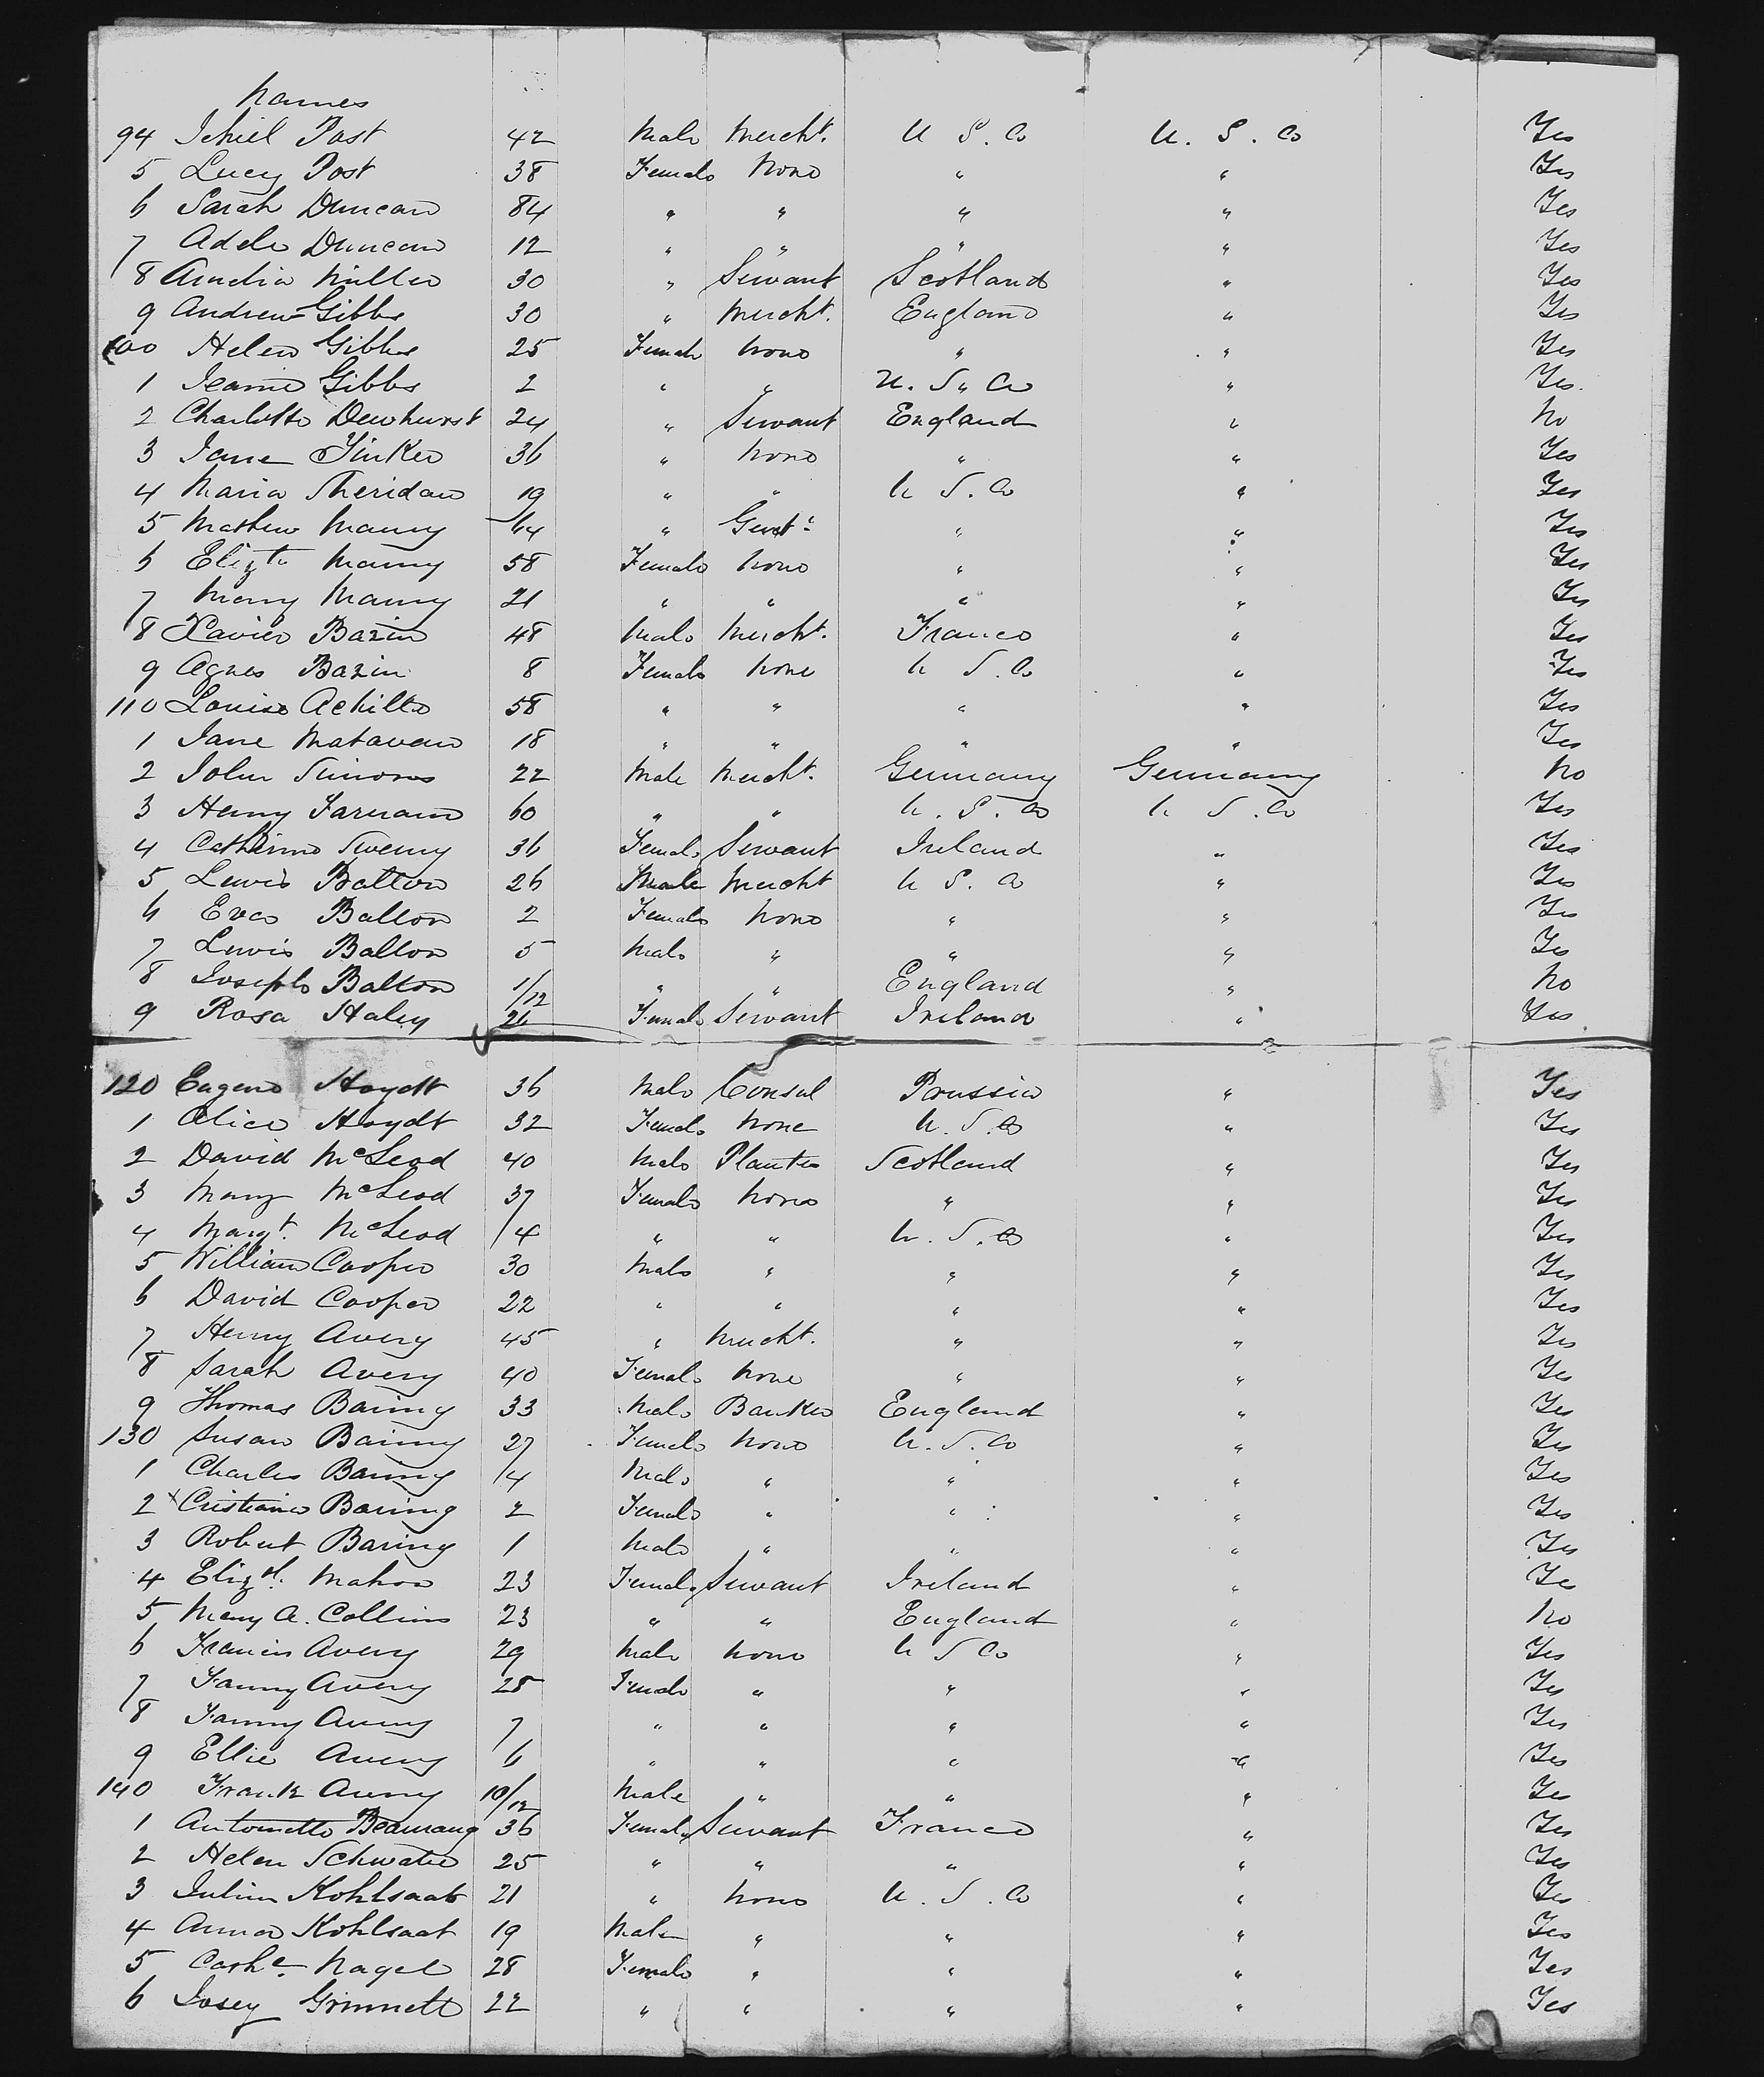 Names
94 Jehiel Post 42 Male Mercht. U S. A U. S. A Yes
5 Lucy Post 38 Female None " " Yes
6 Sarah Duncan 84 " " " " Yes
7 Adele Duncan 12 " " " " Yes
8 Amelia Miller 30 " Servant Scotland " Yes
9 Andrew Gibbs 30 " Mercht. England " Yes
100 Helen Gibbs 25 Female None " " Yes
1 Jeanie Gibbs 2 " " U. S. A " Yes
2 Charlotte Dewhurst 24 " Servant England " No
3 Jane Tinker 36 " None " " Yes
4 Maria Sheridan 19 " " U S. A " Yes
5 Mathew Maury 64 " Gent. " " Yes
6 Elizth Maury 58 Female None " " Yes
7 Mary Maury 21 " " " " Yes
8 Xavier Bazin 48 Male Mercht. France " Yes
9 Agnes Bazin 8 Female None U S. A " Yes
110 Louise Achille 58 " " " " Yes
1 Jane Matavan 18 " " " " Yes
2 John Simons 22 Male Mercht. Germany Germany No
3 Henry Farnam 60 " " U. S. A U S. A Yes
4 Catherine Sweeny 36 Female Servant Ireland " Yes
5 Lewis Balton 26 Male Mercht U S. A " Yes
6 Eva Balton 2 Female None " " Yes
7 Lewis Balton 5 Male " " " Yes
8 Joseph Balton 1/12 " " England " No
9 Rosa Haley 26 Female Servant Ireland " Yes
120 Eugene Hoydt 36 Male Consul Prussia " Yes
1 Alice Hoydt 32 Female None U. S. A " Yes
2 David McLeod 40 Male Planter Scotland " Yes
3 Mary McLeod 37 Female None " " Yes
4 Margt. McLeod 14 " " U. S. A " Yes
5 William Cooper 30 Male " " " Yes
6 David Cooper 22 " " " " Yes
7 Henry Avery 45 " Mercht. " " Yes
8 Sarah Avery 40 Female None " " Yes
9 Thomas Baring 33 Male Banker England " Yes
130 Susan Baring 27 Female None U. S. A " Yes
1 Charles Baring 4 Male " " " Yes
2 x Cristiana Baring 2 Female " " " Yes
3 Robert Baring 1 Male " " " Yes
4 Elizth. Mahon 23 Female Servant Ireland " Yes
5 Mary A. Collins 23 " " England " No
6 Francis Avery 29 Male None U S A " Yes
7 Fanny Avery 28 Female " " " Yes
8 Fanny Avery 7 " " " " Yes
9 Ellie Avery 6 " " " " Yes
140 Frank Avery 10/12 Male " " " Yes
1 Antoinette 36 Female Servant France " Yes
2 Helen 25 " " " " Yes
3 Kohlsaat 21 " None U. S. A " Yes
4 Anna Kohlsaat 19 Male " " " Yes
5 Cathe. Nagel 28 Female " " " Yes
6 Josey Grinnell 22 " " " " Yes